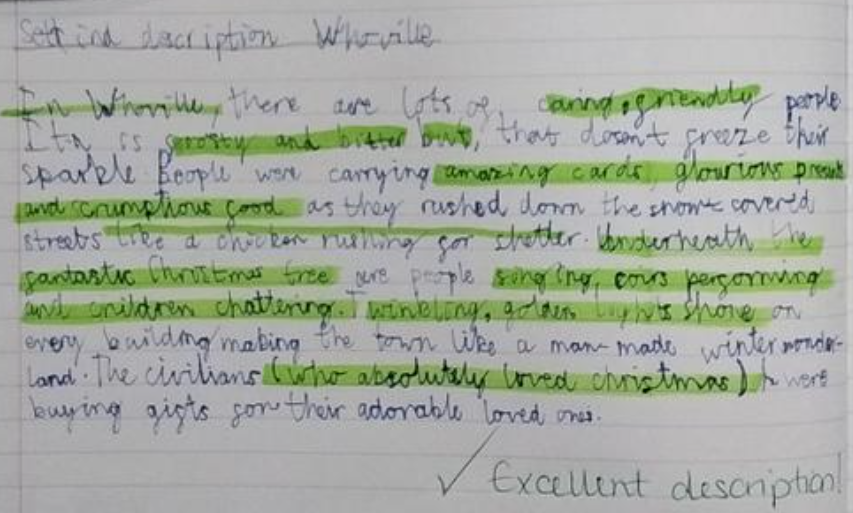 Setting description Whoville
In Whoville, there are lots of caring, friendly people
It is frosty and bitter but, that doesn't freeze their
sparkle. People were carrying amazing cards, glourious presents
and scrumptious food as they rushed down the snow covered
streets like a chicken rushing for shelter. Underneath the
fantastic Christmas tree are people singing, performing
and children chattering. Twinkling, golden lights shone on
every building making the town like a man-made winter wonder-
land. The civilians (who absolutely loved christmas) were
buying gifts for their adorable loved ones.
✓ Excellent description!